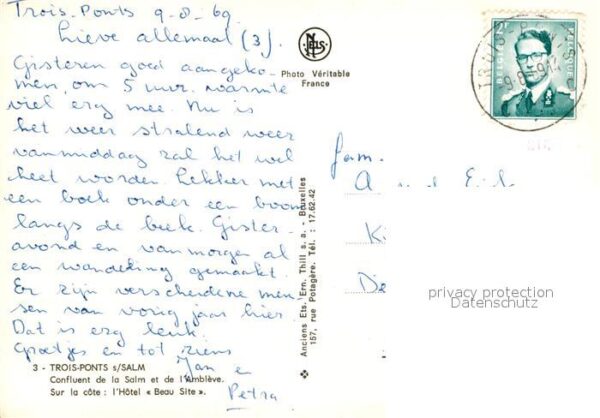 Trois-Ponts 9-8-69
Lieve allemaal (3).
Gisteren goed aangeko-
men, om 5 uur. warmte
viel erg mee. Nu is
het weer stralend weer
vanmiddag zal het wel
heet worden. Lekker met
een boek onder een boom
langs de beek. Gister-
avond en vanmorgen al
een wandeling gemaakt.
Er zijn verscheidene men-
sen van vorig jaar hier.
Dat is erg leuk.
Groetjes en tot ziens
Jan en
Petra
3 - TROIS-PONTS s/SALM
Confluent de la Salm et de l'Amblève.
Sur la côte : l'Hôtel « Beau Site ».
NELS
Photo Véritable
France
Anciens Ets. Ern. Thill s. a. - Bruxelles
157, rue Potagère. Tél. : 17.62.42
BELGIE
BELGIQUE
Fam.
A
Ki
De
privacy protection
Datenschutz